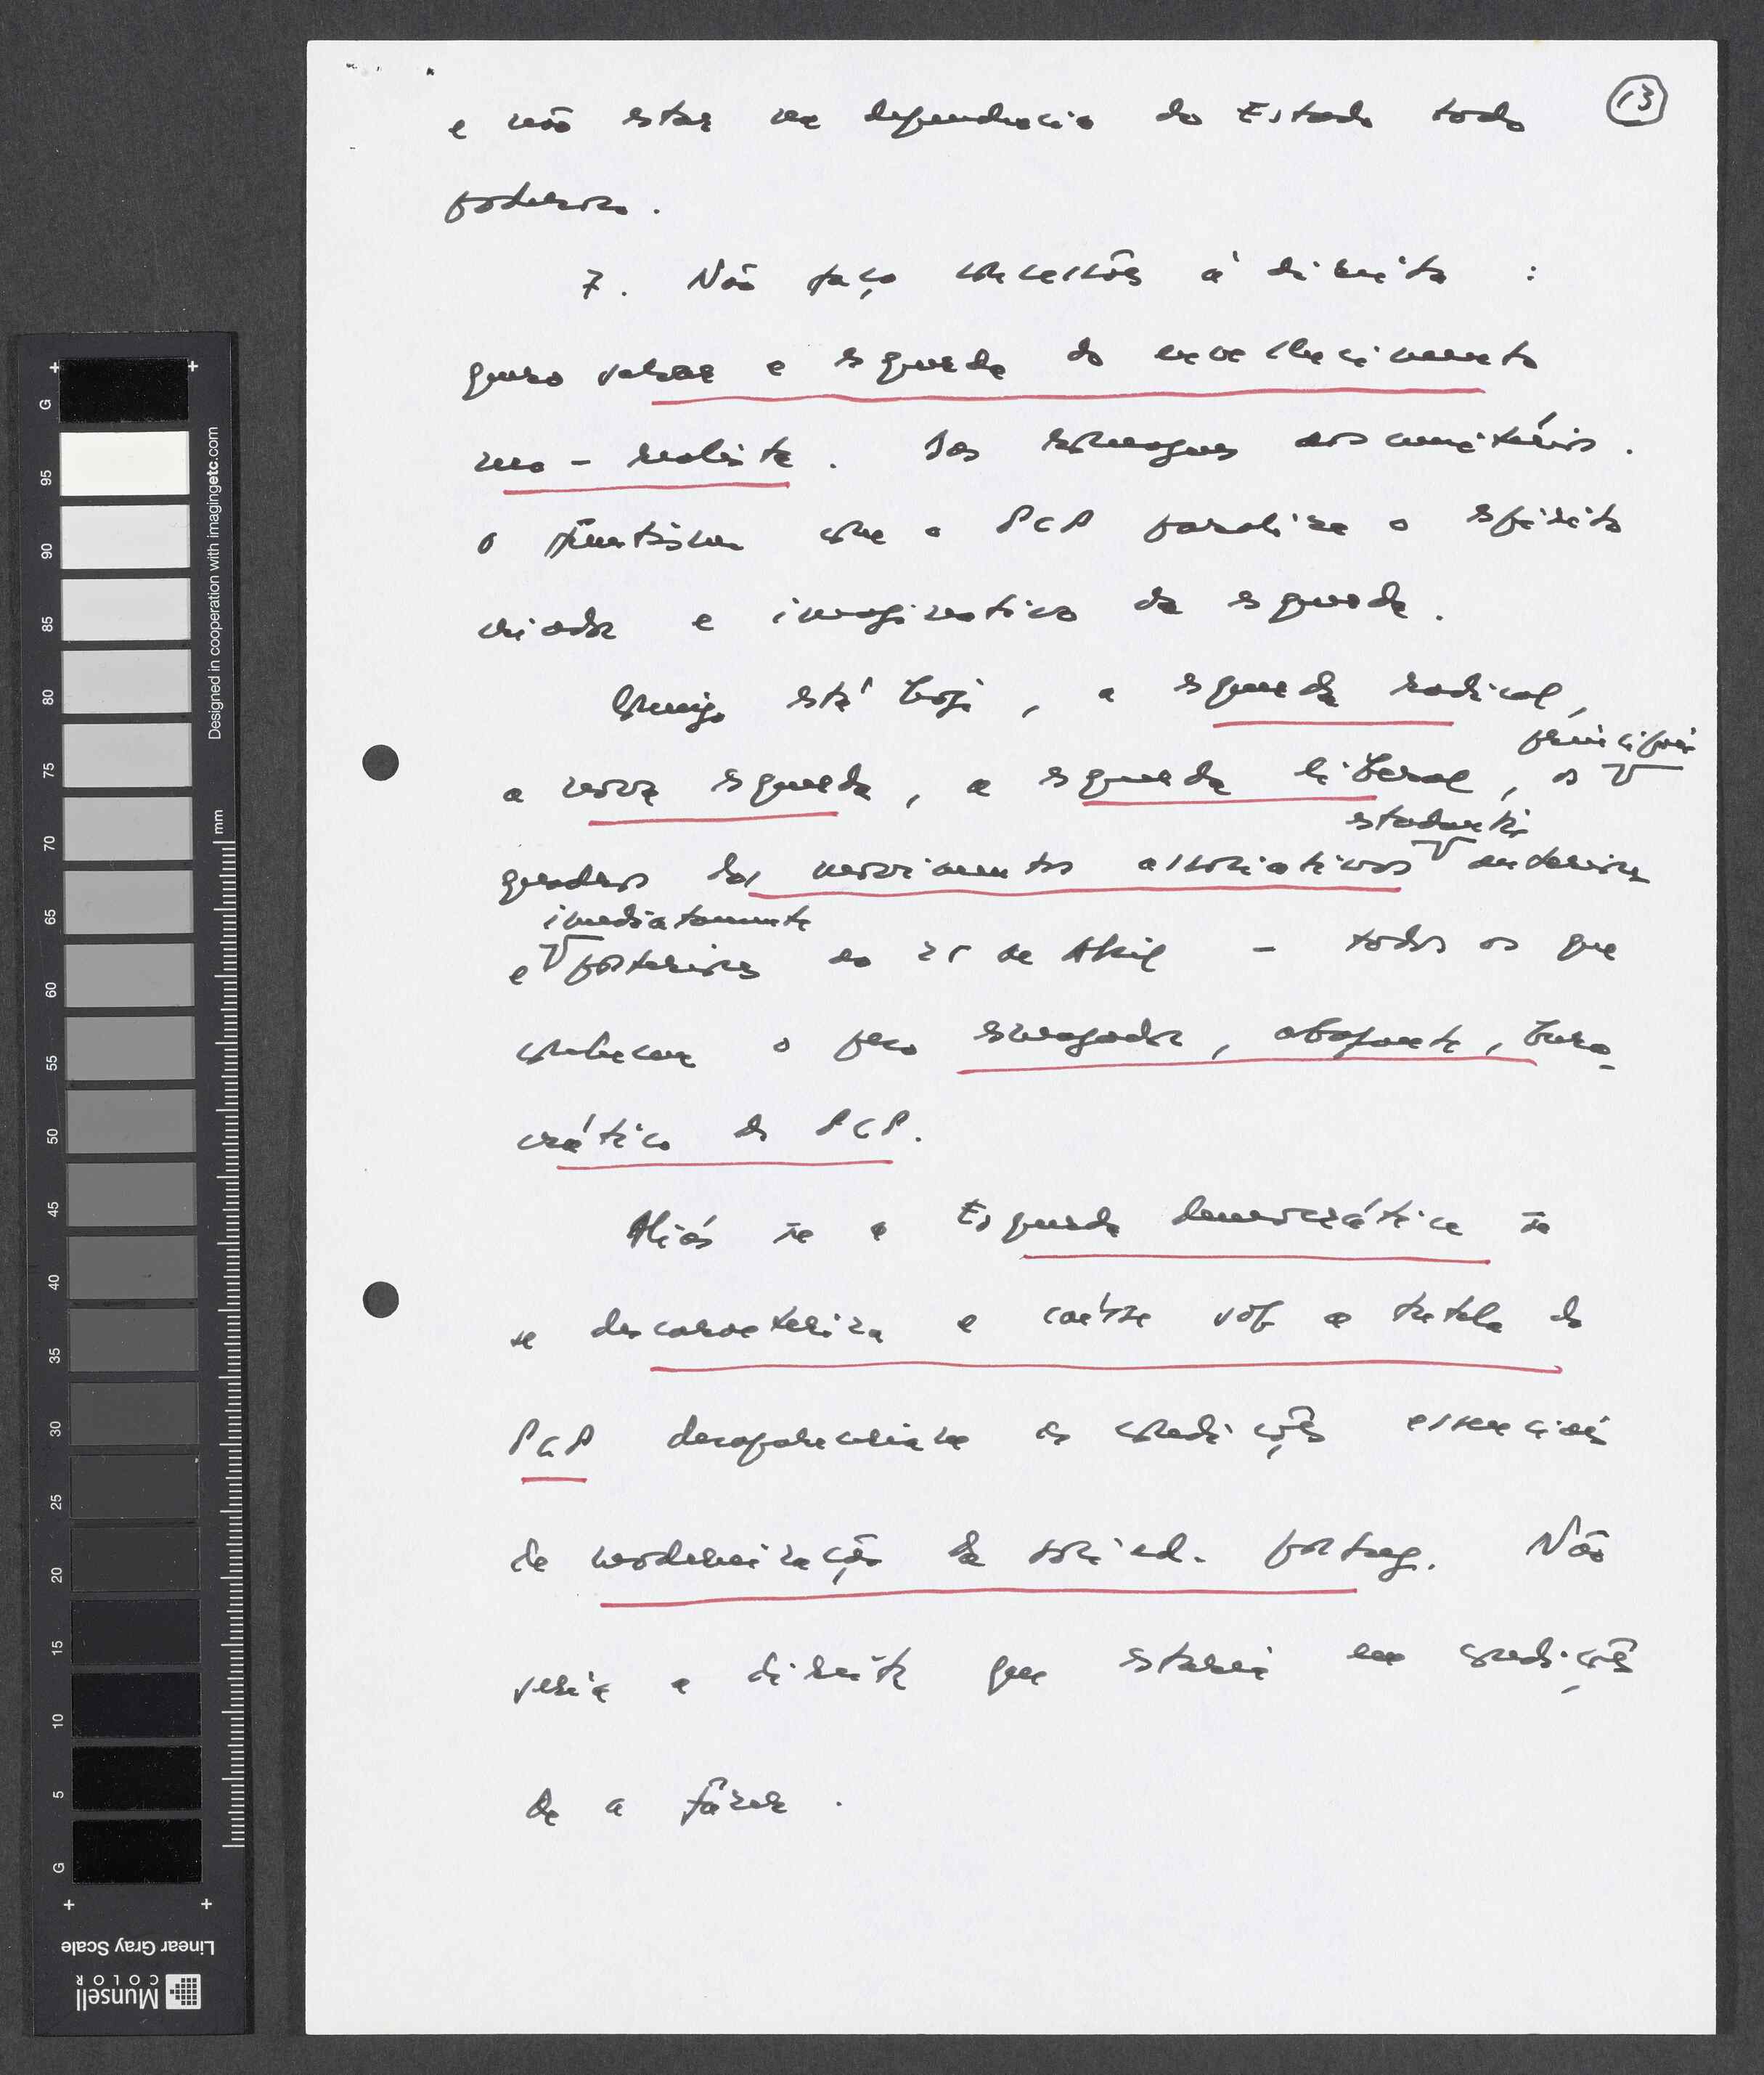 13
e não estar na dependência do Estado todo
poderoso.
7. Não faço concessões à direita :
quero salvar a esquerda do envelhecimento
neo-realista. Das
o frentismo com o PCP paraliza o espírito
criador e imaginativo da esquerda.
Comigo está hoje, a esquerda radical,
principais
a nova esquerda, a esquerda liberal, os
estudantis
quadros dos movimentos associativos anteriores
imediatamente
e posteriores ao 25 de Abril - todos os que
conhecem o peso esmagador, asfixiante, buro-
crático do PCP.
Aliás se a Esquerda democrática se
se descaracteriza e coloca sob a tutela do
PCP desapareceriam as condições essenciais
de modernização da socied. portug. Não
seria a direita que estaria em condições
de a fazer.
G 95 90 85 80 75 70 65 60 55 50 45 40 35 30 25 20 15 10 5 G
mm
Designed in cooperation with imagingetc.com
Linear Gray Scale
Munsell
COLOR